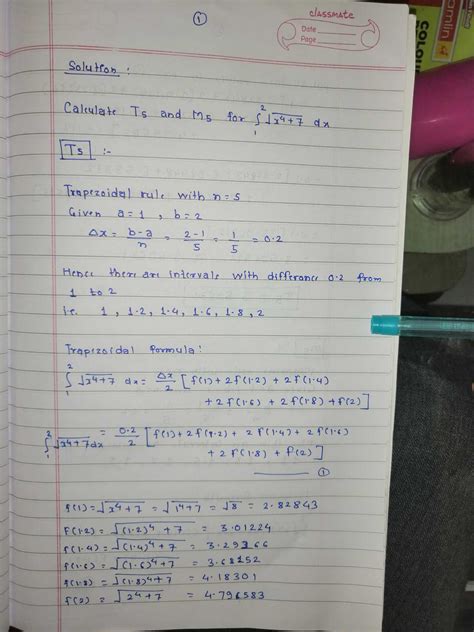 1
classmate
Date
Page
Solution :
Calculate T5 and M5 for ∫₁² √x⁴+7 dx
T5 :-
Trapezoidal rule with n=5
Given a=1 , b=2
Δx = b-a/n = 2-1/5 = 1/5 = 0.2
Hence there are intervals with difference 0.2 from
1 to 2
i.e. 1 , 1.2 , 1.4 , 1.6 , 1.8 , 2
Trapezoidal formula:
∫₁² √x⁴+7 dx = Δx/2 [ f(1) + 2f(1.2) + 2f(1.4)
+ 2f(1.6) + 2f(1.8) + f(2) ]
∫₁² √x⁴+7 dx = 0.2/2 [ f(1) + 2f(1.2) + 2f(1.4) + 2f(1.6)
+ 2f(1.8) + f(2) ]
1
f(1) = √x⁴+7 = √1⁴+7 = √8 = 2.82843
f(1.2) = √(1.2)⁴+7 = 3.01224
f(1.4) = √(1.4)⁴+7 = 3.29366
f(1.6) = √(1.6)⁴+7 = 3.68152
f(1.8) = √(1.8)⁴+7 = 4.18301
f(2) = √2⁴+7 = 4.796583